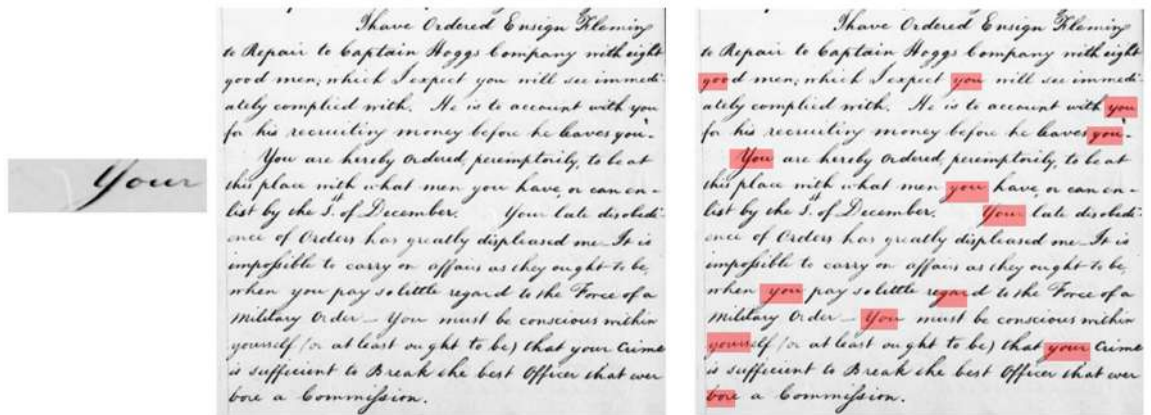 Your
I have Ordered Ensign Fleming
to Repair to Captain Hoggs Company with eight
good men; which I expect you will see immedi-
ately complied with. He is to account with you
for his recruiting money before he leaves you.
You are hereby Ordered, peremptorily, to be at
this place with what men you have, or can en-
list by the 1.st of December. Your late disobedi-
ence of Orders has greatly displeased me. It is
impossible to carry on affairs as they ought to be,
when you pay so little regard to the Force of a
Military Order — You must be conscious within
yourself (or at least ought to be) that your Crime
is sufficient to Break the best Officer that ever
bore a Commission.
I have Ordered Ensign Fleming
to Repair to Captain Hoggs Company with eight
good men; which I expect you will see immedi-
ately complied with. He is to account with you
for his recruiting money before he leaves you.
You are hereby Ordered, peremptorily, to be at
this place with what men you have, or can en-
list by the 1.st of December. Your late disobedi-
ence of Orders has greatly displeased me. It is
impossible to carry on affairs as they ought to be,
when you pay so little regard to the Force of a
Military Order — You must be conscious within
yourself (or at least ought to be) that your Crime
is sufficient to Break the best Officer that ever
bore a Commission.